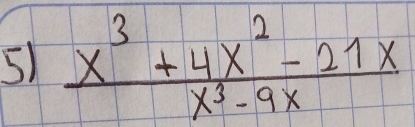 5) x³ + 4x² - 21x
x³ - 9x